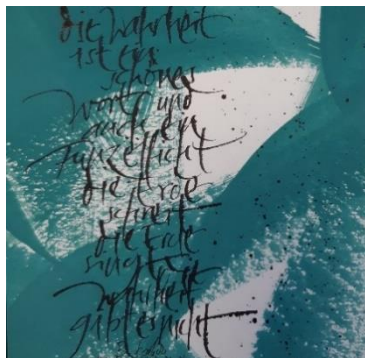 die Wahrheit
ist ein
schönes
Wort und
auch ein
Funzellicht
die Erde
schreit
die Erde
sucht
Wahrheit
gibt es nicht